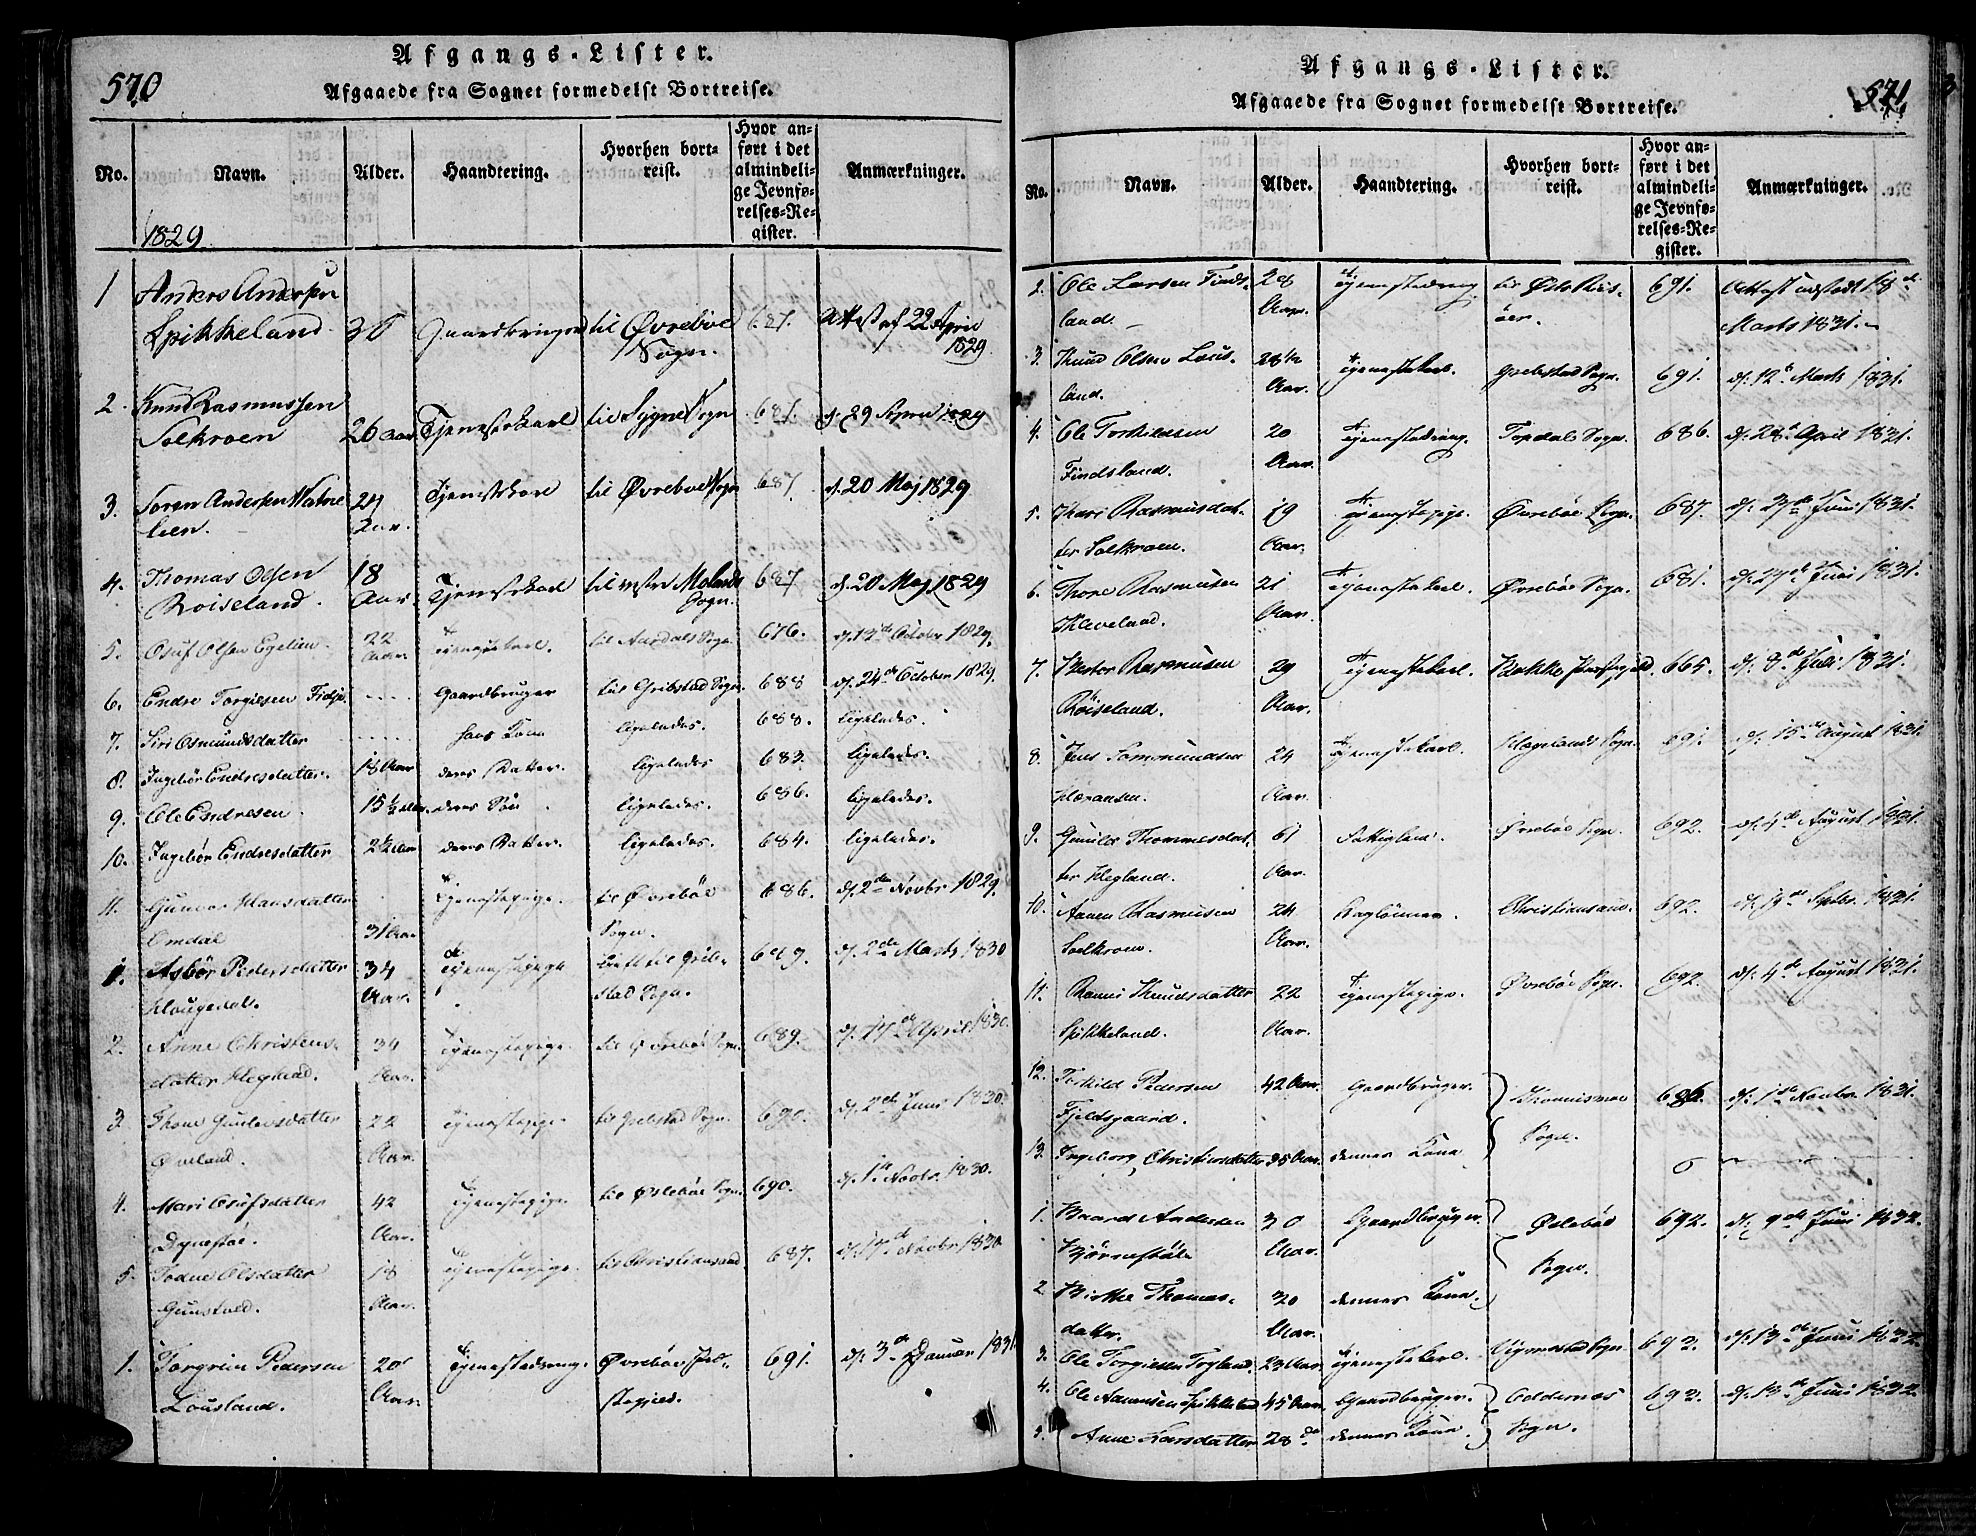 570
Afgangs-Lister.
Afgaaede fra Sognet formedelst Bortreise.
No. Navn. Alder. Haandtering. Hvorhen bortreist. Hvor anført i det almindelige Jevnførelses-Register. Anmærkninger.
1829
1 Anders Andersen
Spikkeland 30 Gaardbruger til Øvrebøe Sogn. 687. Attest af 22 April 1829
2. Knud Rasmussen
Solkroen 26 Aar Tjenestekarl til Sygne Sogn 687. d. 29 April 1829
3. Soren Andersen Watne 24 Tjenestekarl til Øvreboe Sogn 687. d. 20 Maj 1829
lien. Aar.
4. Thomas Olsen 18
Roiseland. Aar. Tjenestekarl til vestre Molands Sogn. 687 d. 20 Maj 1829
5. Osuf Olsen Egelien. 22 Aar. Tjenestekarl. til Aardals Sogn. 676. d. 13de Octobr 1829.
6. Endre Torgiesen Fidje. Gaardbruger til Gribstad Sogn. 688 d. 24de October 1829.
7. Siri Osmundsdatter hans Kone ligeledes. 688. ligeledes.
8. Ingebör Endresdatter. 18 Aar deres Datter. ligeledes 683. ligeledes.
9. Ole Endresen. 15½ Aar. deres Sön ligeledes. 686. ligeledes.
10. Ingebör Endresdatter 2½ Aar deres Datter. ligeledes. 684. ligeledes.
11. Gunvor Hansdatter Tjenestepige. til Øvreböe 686. d. 2den Novbr 1829.
Omdal 31 Aar Sogn.
1. Asbör Pedersdatter 34 Tjenestepige til Grib- 689. d. 2den Marts 1830
Hougedal. Aar. stad Sogn.
2. Anne Christens- 34 Tjenestepige. til Øvreböe Sogn. 689. d. 17de April 1830.
datter Hegland. Aar.
3. Thone Gunlevsdatter 22 Tjenestepige. til Grebstad Sogn. 690. d. 2den Juni 1830.
Øveland. Aar.
4. Mari Osufsdatter 42 Tjenestepige. til Øsleböe Sogn. 690. d. 1ste Novbr. 1830.
Dynestøl. Aar.
5. Todne Olsdatter 18 Tjenestepige. til Christiansand 687. d. 17de Novbr 1830
Gumsteed. Aar.
1. Torgrim Pedersen 20 Tjenestedreng. Øvreböe Præ- 691. d. 3de Januar 1831
Lousland. Aar. stegjed.
571.
Afgangs-Lister.
Afgaaede fra Sognet formedelst Bortreise.
No. Navn. Alder. Haandtering. Hvorhen bortreist. Hvor anført i det almindelige Jevnførelses-Register. Anmærkninger.
2. Ole Larsen Finds- 28 Tjenestedreng til Øste Riis- 691. Attest udstedt 18de
land. Aar. öer. Marts 1831.
3. Knud Olsen Lous- 28½ Tjenestekarl. Grebstad Sogn. 691. d. 12te Marts 1831.
land. Aar.
4. Ole Torkildsen 20 Tjenestedreng. Topdals Sogn. 686. d. 28de April 1831.
Findsland. Aar.
5. Kari Rasmusdat- 19 Tjenestepige. Øvreböe Sogn. 687. d. 27de Juni 1831.
ter Solkroen. Aar.
6. Thore Rasmusen 21 Tjenestekarl. Øvreböe Sogn. 681. d. 27de Juni 1831.
Kleveland. Aar.
7. Peder Rasmusen 29 Tjenestekarl. Bakke Præstegjeld. 665. d. 8de Juli 1831.
Röiseland. Aar.
8. Jens Sommundsen 24 Tjenestekarl. Hægelands Sogn. 691. d. 15de August 1831.
Aar.
9. Gunild Thommesdat- 61 Fattiglem. Øvreböe Sogn. 692. d. 4de August 1831.
ter Hegland. Aar.
10. Aanen Rasmusen 24 Daglönner. Christiansand. 692. d. 19de Septbr. 1831.
Solkroen. Aar.
11. Ranni Knudsdatter 22 Tjenestepige. Øvreböe Sogn. 692. d. 4de August 1831.
Spikkeland. Aar.
12. Torkild Pedersen 42 Aar. Gaardbruger. 686. d. 1ste Novbr. 1831.
Fjeldsgaard. Sogn.
13. Ingeborg Christensdatter 35 Aar. dennes Kone
1. Baard Andersen 30 Gaardbruger. Øsleböe 692. d. 9de Juni 1832.
Björnestöl Aar. Sogn.
2. Birthe Thomas- 30 dennes Kone.
datter. Aar.
3. Ole Torgiesen Fogland. 23 Aar. Tjenestekarl. Vigmostad Sogn 692. d. 13de Juni 1832.
4. Ole Aanensen Spikkeland 45 Aar. Gaardbruger. Oddernes 692. d. 13de Juni 1832.
5. Anne Larsdatter 28 do dennes Kone. Sogn.